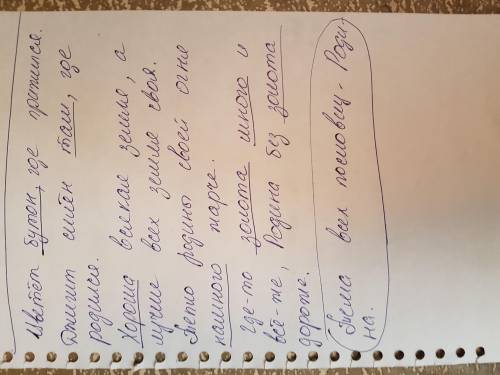 Цветёт бутон, где прижился.
Джигит силён там, где
родился.
Хороша всякая земля, а
лучше всех земля своя.
Тепло родины своей огня
намного жарче.
Где-то золота много и
всё-же, Родина без золота
дороже.
Тема всех пословиц - Роди-
на.